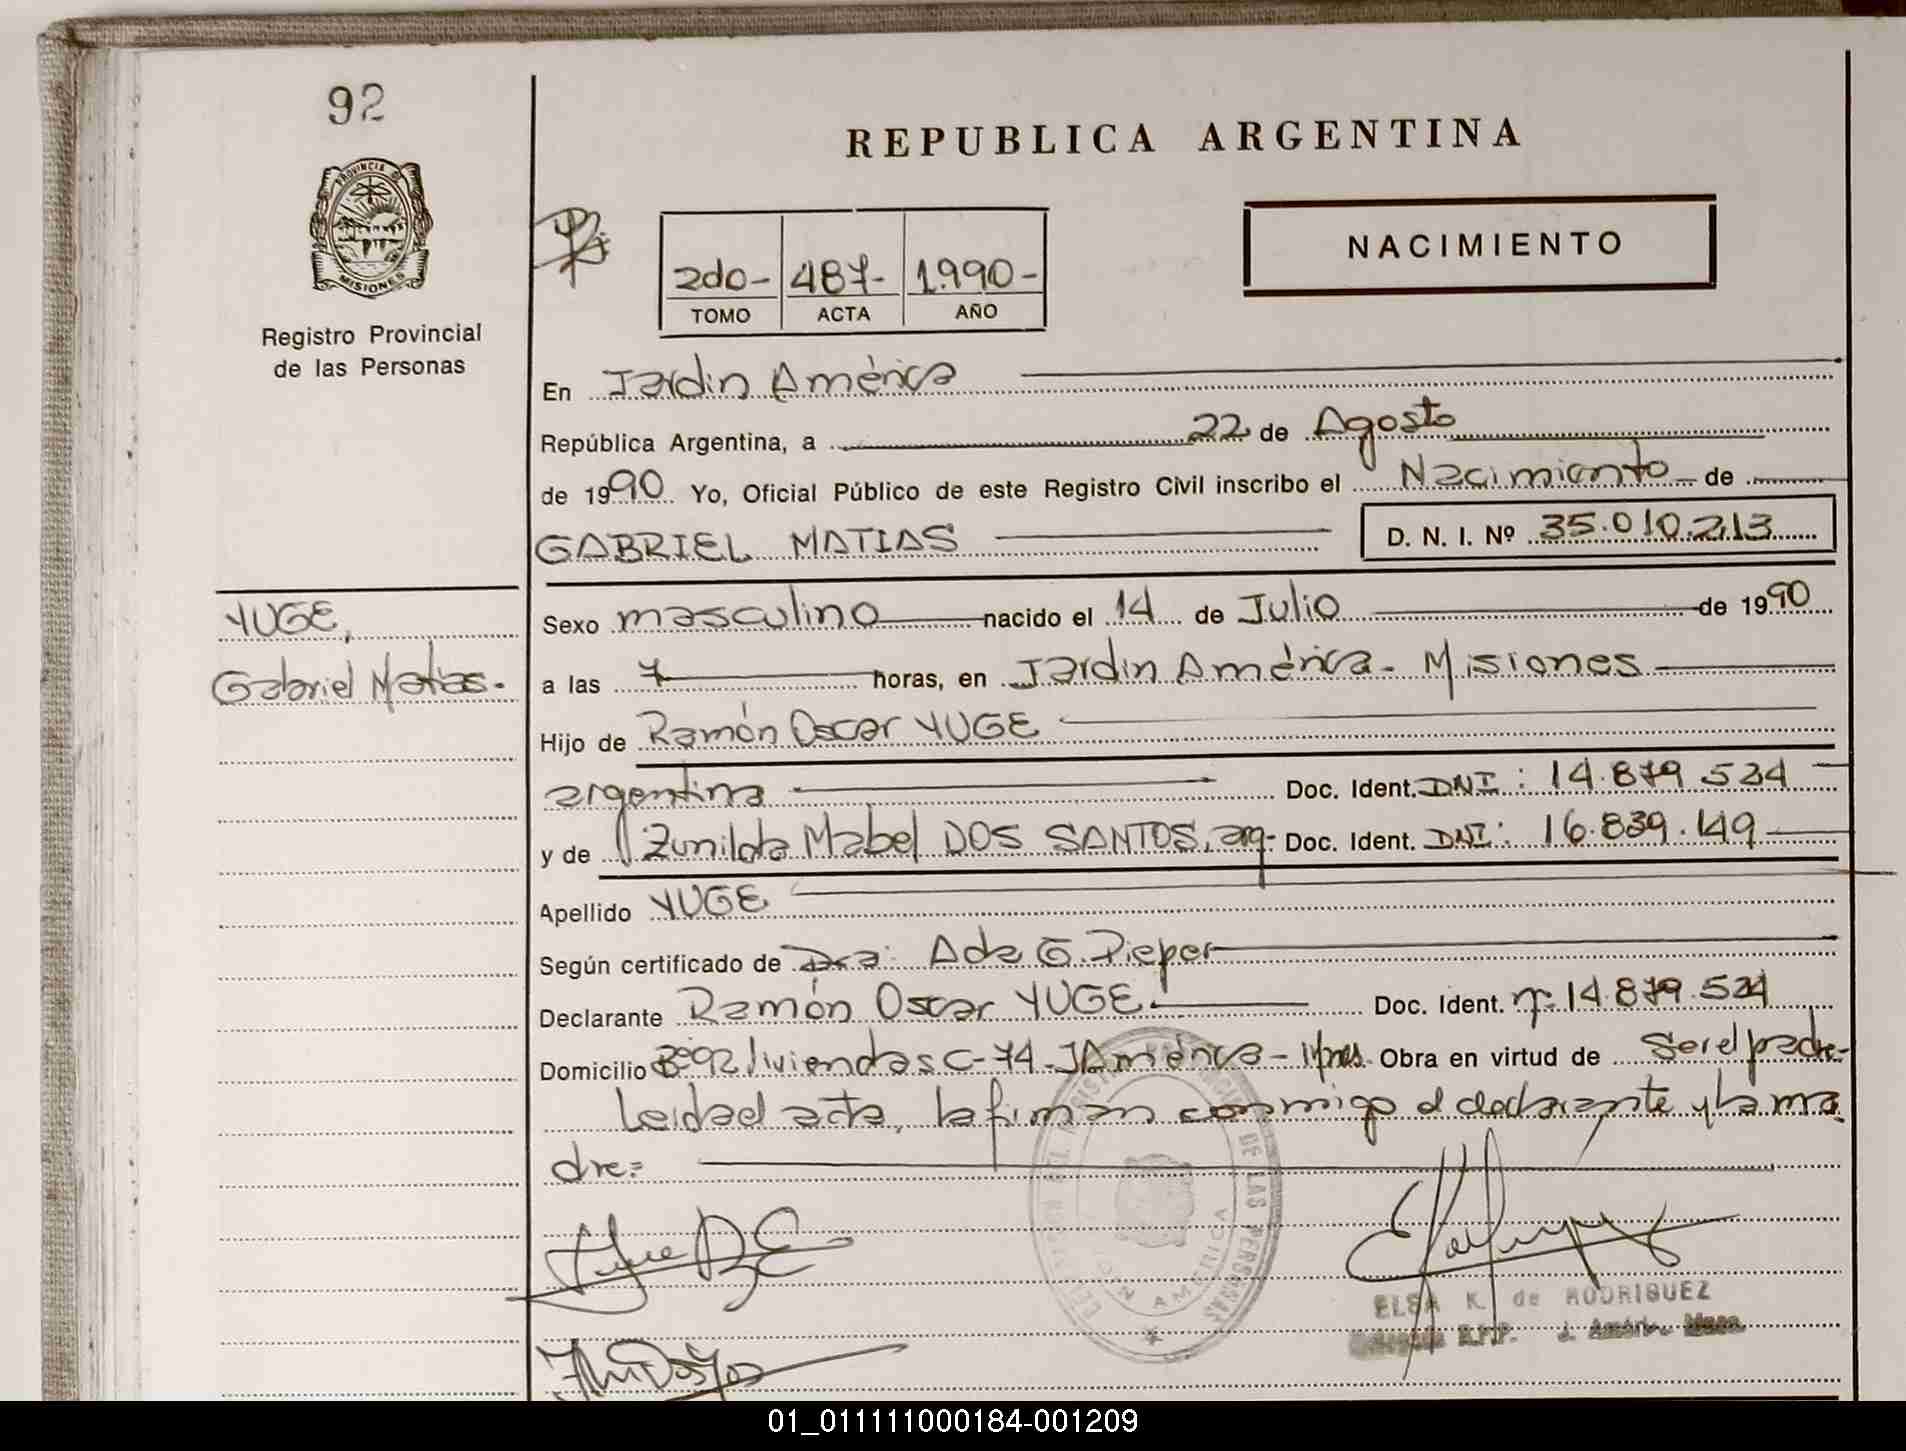 92
PROVINCIA D
MISIONES
Registro Provincial
de las Personas
REPUBLICA ARGENTINA
NACIMIENTO
2do- 487- 1.990-
TOMO ACTA AÑO
En Jardin América
República Argentina, a 22 de Agosto
de 1990 Yo, Oficial Público de este Registro Civil inscribo el Nacimiento de
GABRIEL MATIAS D. N. I. Nº 35.010.213
YUGE,
Gabriel Matias.
Sexo masculino nacido el 14 de Julio de 1990
a las 7 horas, en Jardin América - Misiones
Hijo de Ramón Oscar YUGE
argentina Doc. Ident. DNI: 14.879.524
y de Zunilda Mabel DOS SANTOS, arg- Doc. Ident. DNI: 16.839.149
Apellido YUGE
Según certificado de Dra: Ada G. Pieper
Declarante Ramón Oscar YUGE Doc. Ident. nº 14.879.524
Domicilio Bº 92 Viviendas C-74 - J América - Mnes. Obra en virtud de Ser el padre-
Leida el acta, la firman conmigo el declarante y la ma
dre=
DE LAS PERSONAS
AMERICA
ELSA K. de RODRIGUEZ
R.P.P.
01_011111000184-001209